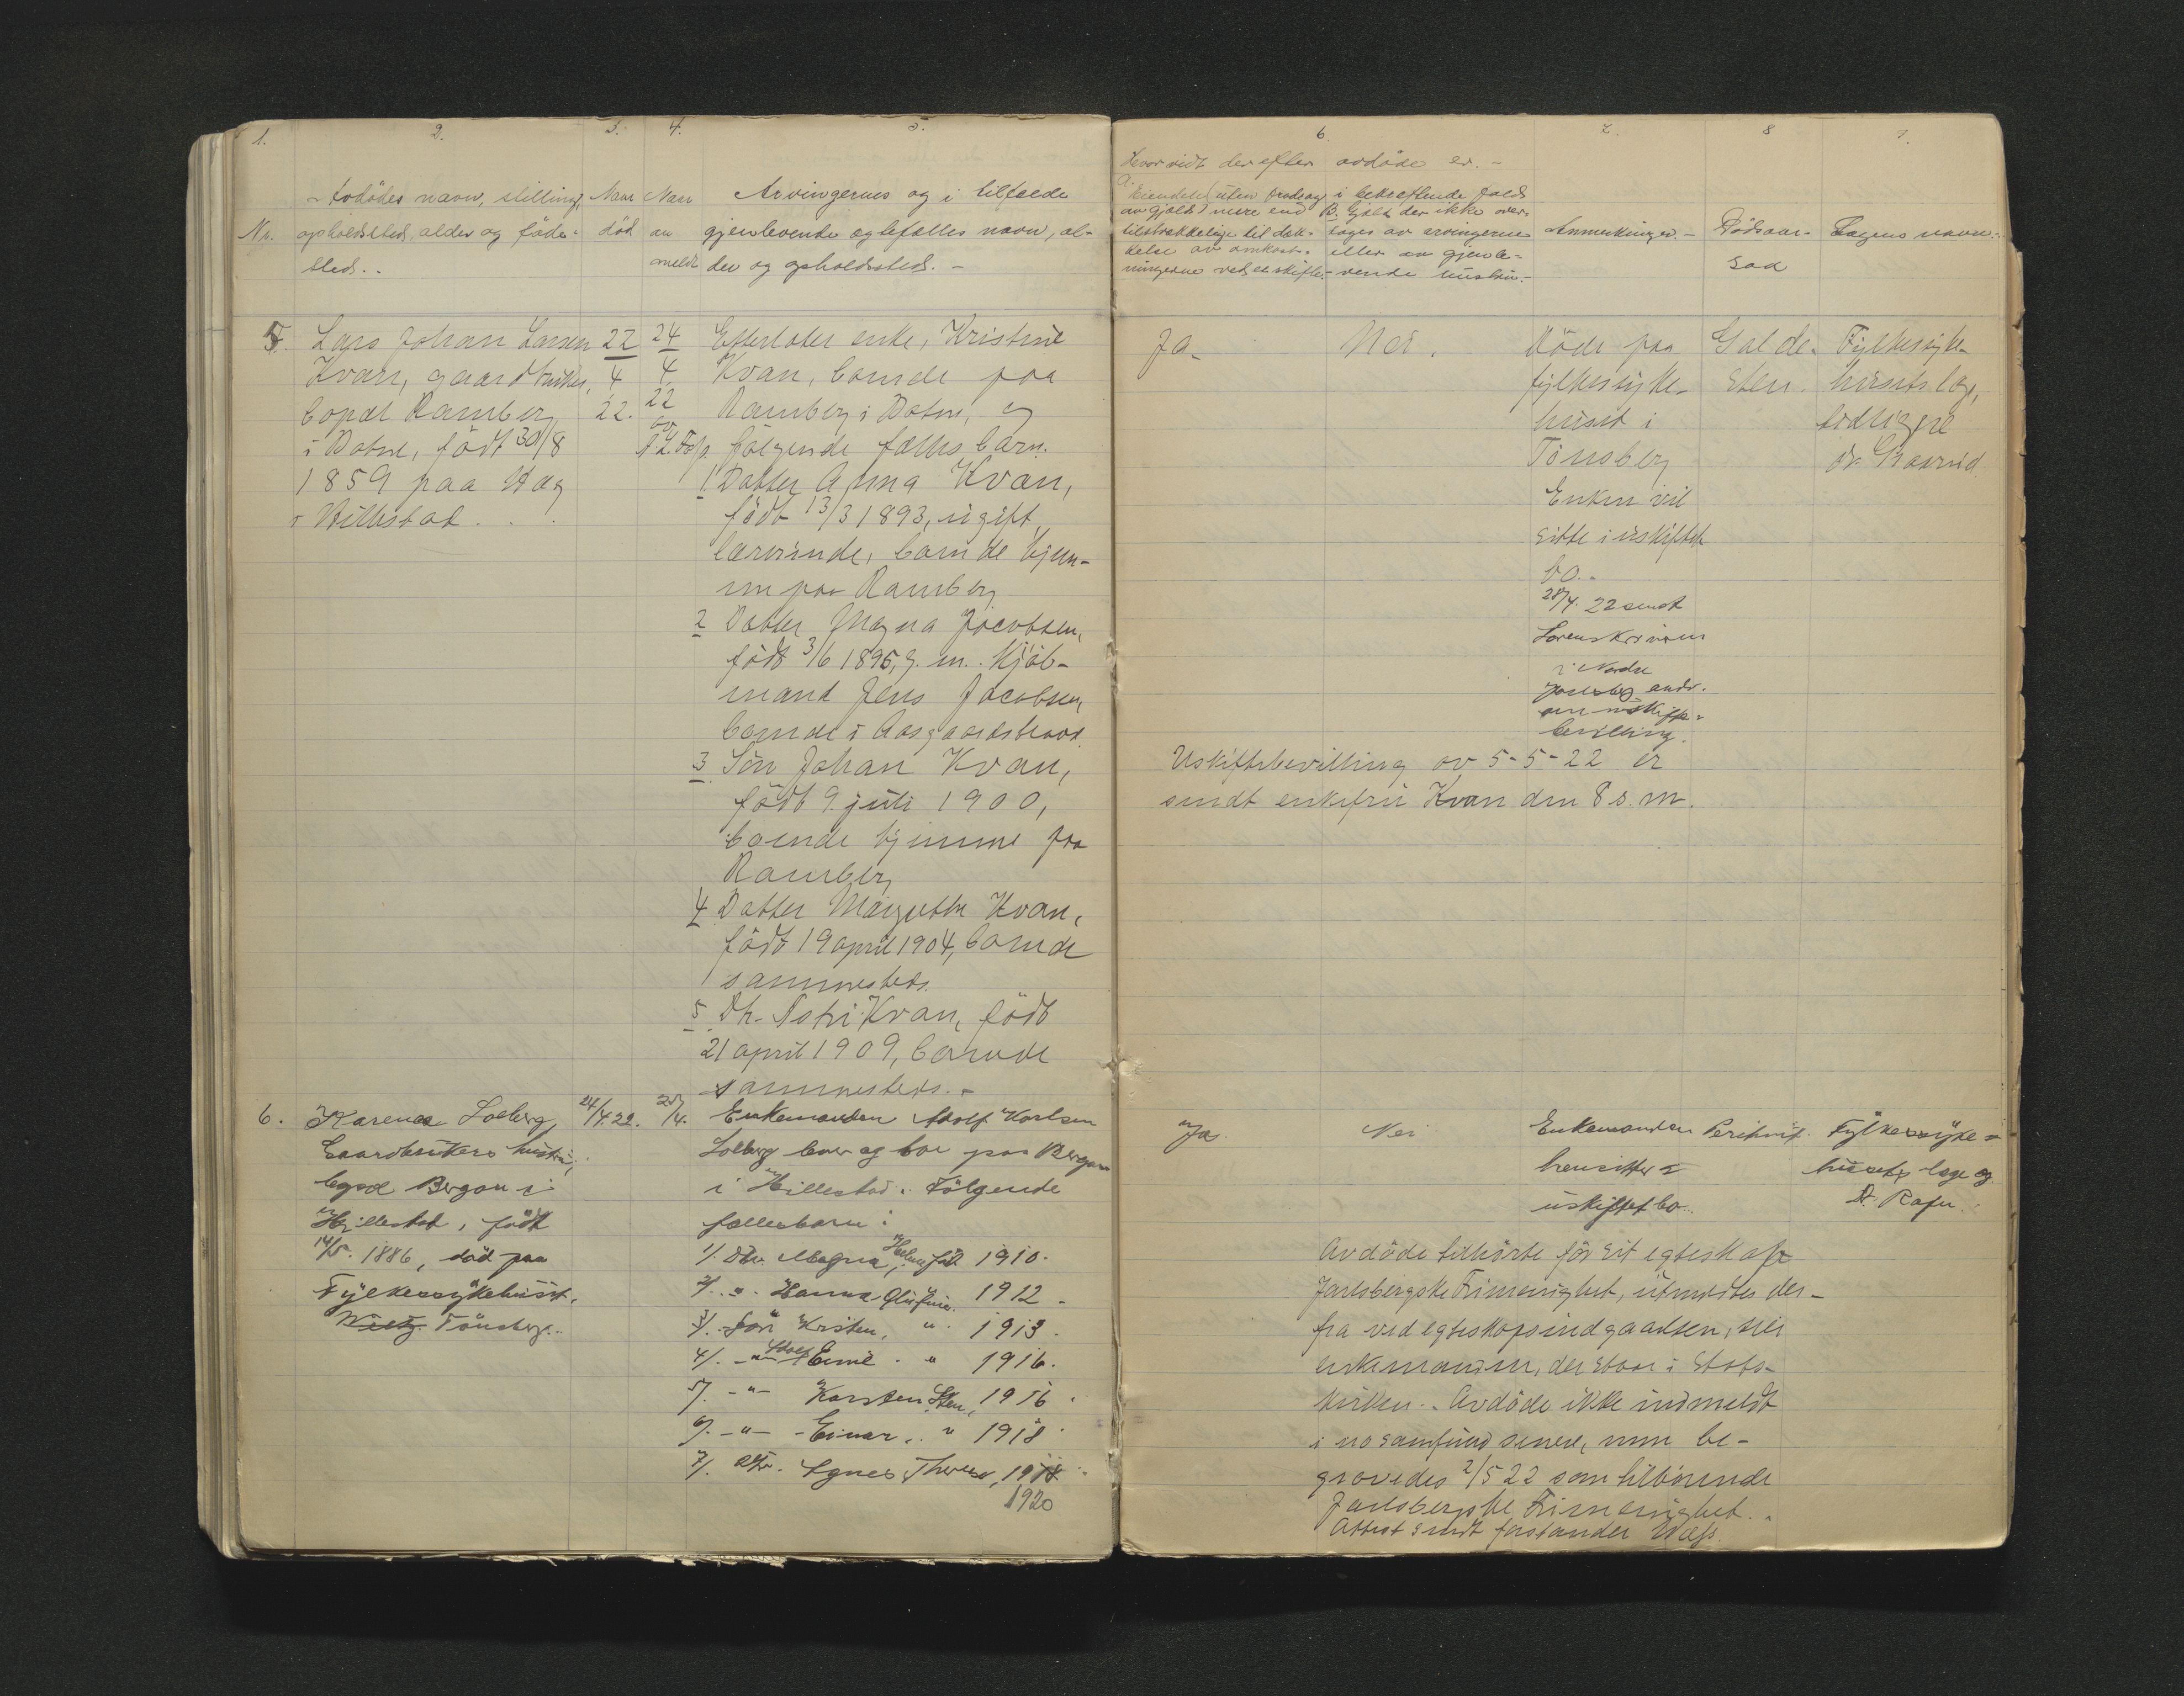 1. 2. 3. 4. 5.
Nr.
Avdödes navn, stilling,
opholdsted, alder og föde-
sted..
Naar
död
Naar
an
meldt
Arvingernes og i tilfælde
gjenlevende egtefælles navn, al-
der og opholdssted. -
5. Lars Johan Larsen
Kvan, gaardbruker,
bopæl Ramberg
i Botne, födt 30/8
1859 paa Hag
i Hillestad . . .
22
4
22.
24
4
22
av
Efterlater enke, Kristine
Kvan, boende paa
Ramberg i Botne, og
fölgende fælles barn.
1 Datter Anna Kvan,
födt 13/3 1893, ugift,
lærerinde, boende hjem-
me paa Ramberg
2 Datter Magna Jacobsen,
födt 3/6 1895, g. m. Kjöb-
mand Jens Jacobsen,
boende i Aasgaardstrand.
3 Sön Johan Kvan,
födt 9. juli 1900,
boende hjemme paa
Ramberg
4 Datter Margrethe Kvan,
födt 19 april 1904, boende
sammesteds.
5 Dtr. Astri Kvan, födt
21 april 1909, boende
sammesteds. -
6. Karen Solberg,
Gaardbrukers hustru,
bopæl Bergan i
Hillestad, födt
14/5. 1886, död paa
Fylkessykehuset,
Tönsberg..
24/4.22.
25/4.
Enkemanden Adolf Karlsen
Solberg lever og bor paa Bergan
i Hillestad. Fölgende
fællesbarn:
1/. Dtr. Magna, född 1910.
2/. " Hanna Olufine. 1912 -
3/. Sön Kristen, " 1913.
4/. -"- Adolf Emil . " 1916.
5/. -"- Karsten Sten, 1916.
6/. -"- Einar, . " 1918.
7/. Dtr. Agnes Therese, 1918
1920
6. 7. 8 9.
Hvorvidt der efter avdöde er. -
A.
Eiendele (uten fradrag
av gjæld) mere end
tilstrekkelige til dæk-
kelse av omkost-
ningerne ved et skifte.
i bekræftende fald
B. Gjæld der ikke over-
tages av arvingerne
eller av gjenle-
vende hustru.-
Anmerkninger. -
Dödsaar-
sak
Lægens navn..
Ja.
Nei.
Döde paa
fylkessyke-
huset i
Tönsberg
Enken vil
sitte i uskiftet
bo. -
28/4. 22 sendt
Sorenskriveren
i Nordre
Jarlsberg andr.
om uskifte-
bevilling.
Galde-
sten.
Fylkessyke-
husets læge,
tidligere
dr.
Uskiftebevilling av 5-5-22 er
sendt enkefru Kvan den 8 s. m.
Ja.
Nei
Enkemanden
hensitter i
uskiftet bo..
Fylkessyke-
husets læge og
Dr. Rafn.
Avdöde tilhörte för sit egteskap
Jarlsbergske Frimenighet, utmeldtes der-
fra ved egteskapsindgaaelsen, til
enkemanden, der staar i Stats-
kirken. - Avdöde ikke indmeldt
i no samfund senere, men be-
gravedes 2/5 22 som tilhörende
Jarlsbergske Frimenighet. .
Attest sendt forstander